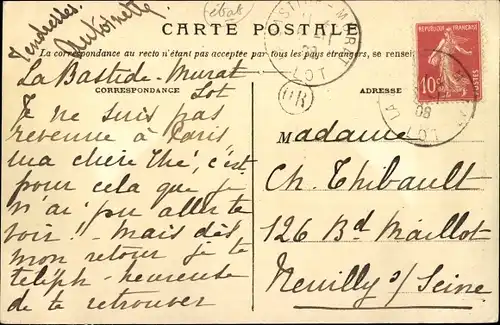 Tendresses.
Antoinette
CARTE POSTALE
La correspondance au recto n'étant pas acceptée par tous les pays étrangers, se rensei
La Bastide-Murat
Lot
CORRESPONDANCE
Je ne suis pas
revenue à Paris
ma chère Thé', c'est
pour cela que je
n'ai pu aller te
voir!! - Mais dès
mon retour je te
téléph- heureuse
de te retrouver
LOT
OR
REPUBLIQUE FRANÇAISE
10c
POSTES
08
LOT
ADRESSE
Madame
Ch. Thibault
126 Bd Maillot
Neuilly s/ Seine